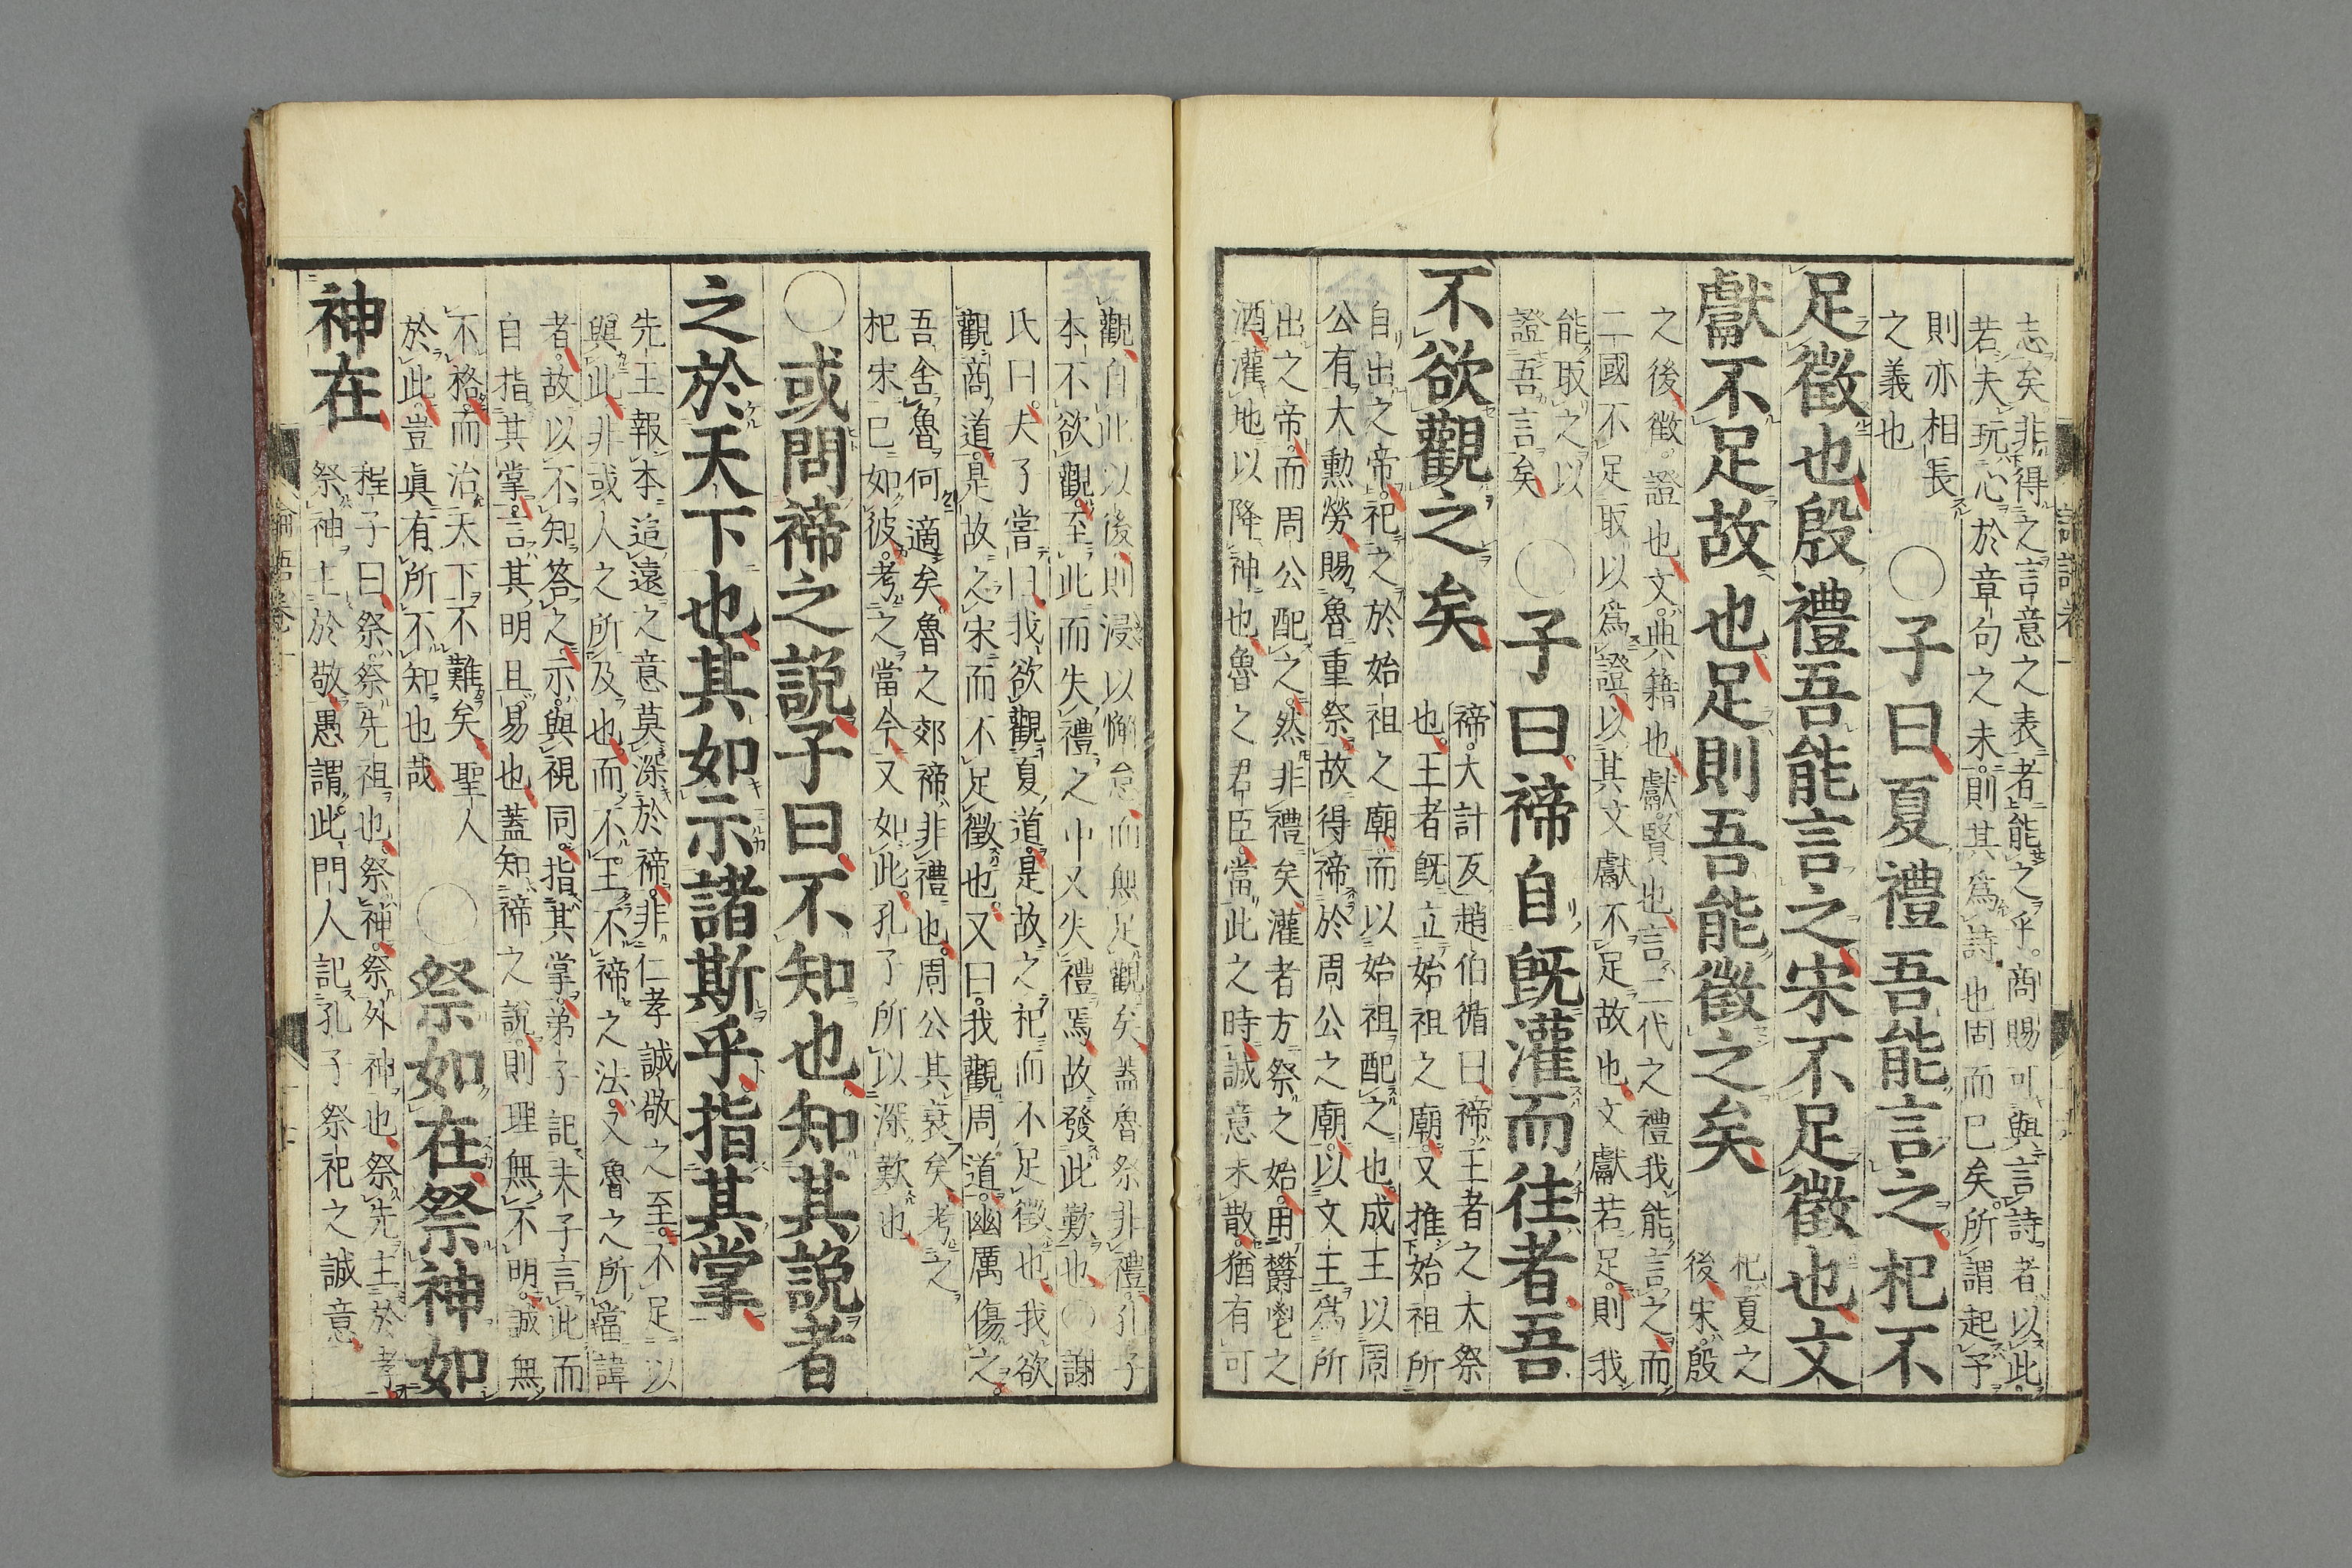 志矣非得之言意之表者能之乎商賜可與言詩者以此
若夫玩心於章句之末則其爲詩也固而已矣所謂起予
則亦相長
之義也
○子曰夏禮吾能言之杞不
足徵也殷禮吾能言之宋不足徵也文
獻不足故也足則吾能徵之矣
杞夏之
後宋殷
之後徵證也文典籍也獻賢也言二代之禮我能言之而
二國不足取以爲證以其文獻不足故也文獻若足則我
能取之以
證吾言矣
○子曰禘自旣灌而往者吾
不欲觀之矣
禘大計反趙伯循曰禘王者之大祭
也王者旣立始祖之廟又推始祖所
自出之帝祀之於始祖之廟而以始祖配之也成王以周
公有大勲勞賜魯重祭故得禘於周公之廟以文王爲所
出之帝而周公配之然非禮矣灌者方祭之始用欝鬯之
酒灌地以降神也魯之君臣當此之時誠意未散猶有可
觀自此以後則浸以懈怠而無足觀矣蓋魯祭非禮孔子
本不欲觀至此而失禮之中又失禮焉故發此歎也○謝
氏曰夫子嘗曰我欲觀夏道是故之杞而不足徵也我欲
觀商道是故之宋而不足徵也又曰我觀周道幽厲傷之
吾舍魯何適矣魯之郊禘非禮也周公其衰矣考之
杞宋已如彼考之當今又如此孔子所以深歎也
○或問禘之說子曰不知也知其說者
之於天下也其如示諸斯乎指其掌
先王報本追遠之意莫深於禘非仁孝誠敬之至不足以
與此非或人之所及也而不王不禘之法又魯之所當諱
者故以不知答之示與視同指其掌弟子記夫子言此而
自指其掌言其明且易也蓋知禘之說則理無不明誠無
不格而治天下不難矣聖人
於此豈眞有所不知也哉
○祭如在祭神如
神在
程子曰祭祭先祖也祭神祭外神也祭先主於孝
祭神主於敬愚謂此門人記孔子祭祀之誠意